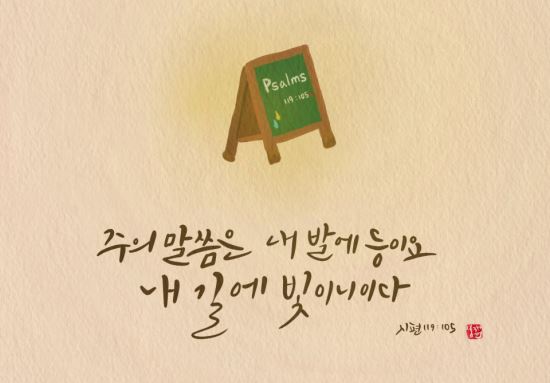 Psalms
119:105
주의 말씀은 내 발에 등이요
내 길에 빛이니이다
시편 119:105